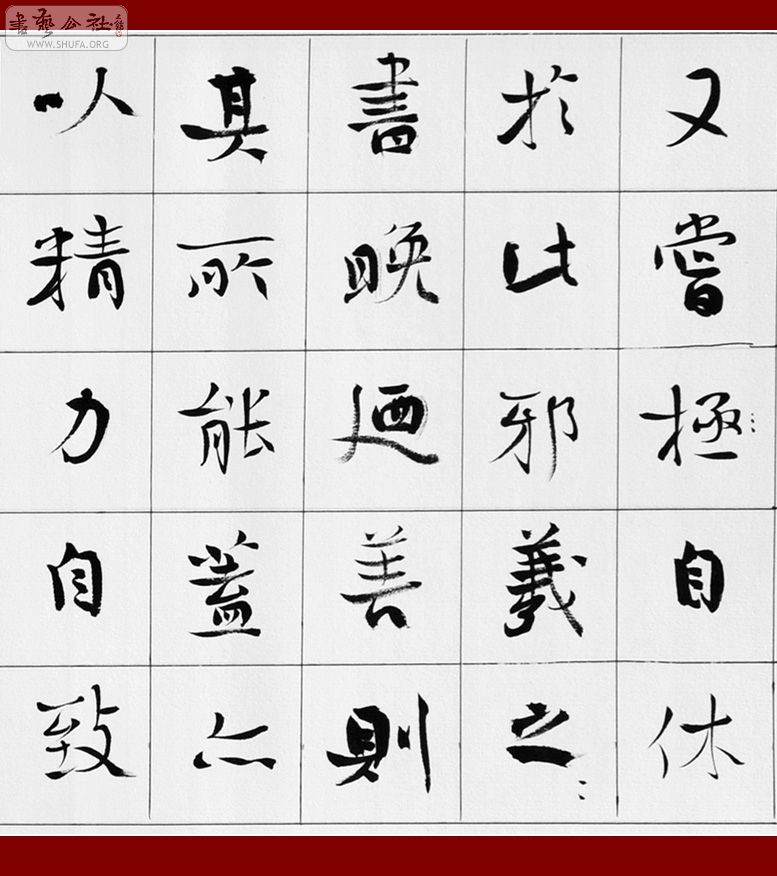 書藝公社
WWW.SHUFA.ORG
又嘗極自休
於此邪羲之〻
書晚廼善則
其所能蓋亦
以精力自致